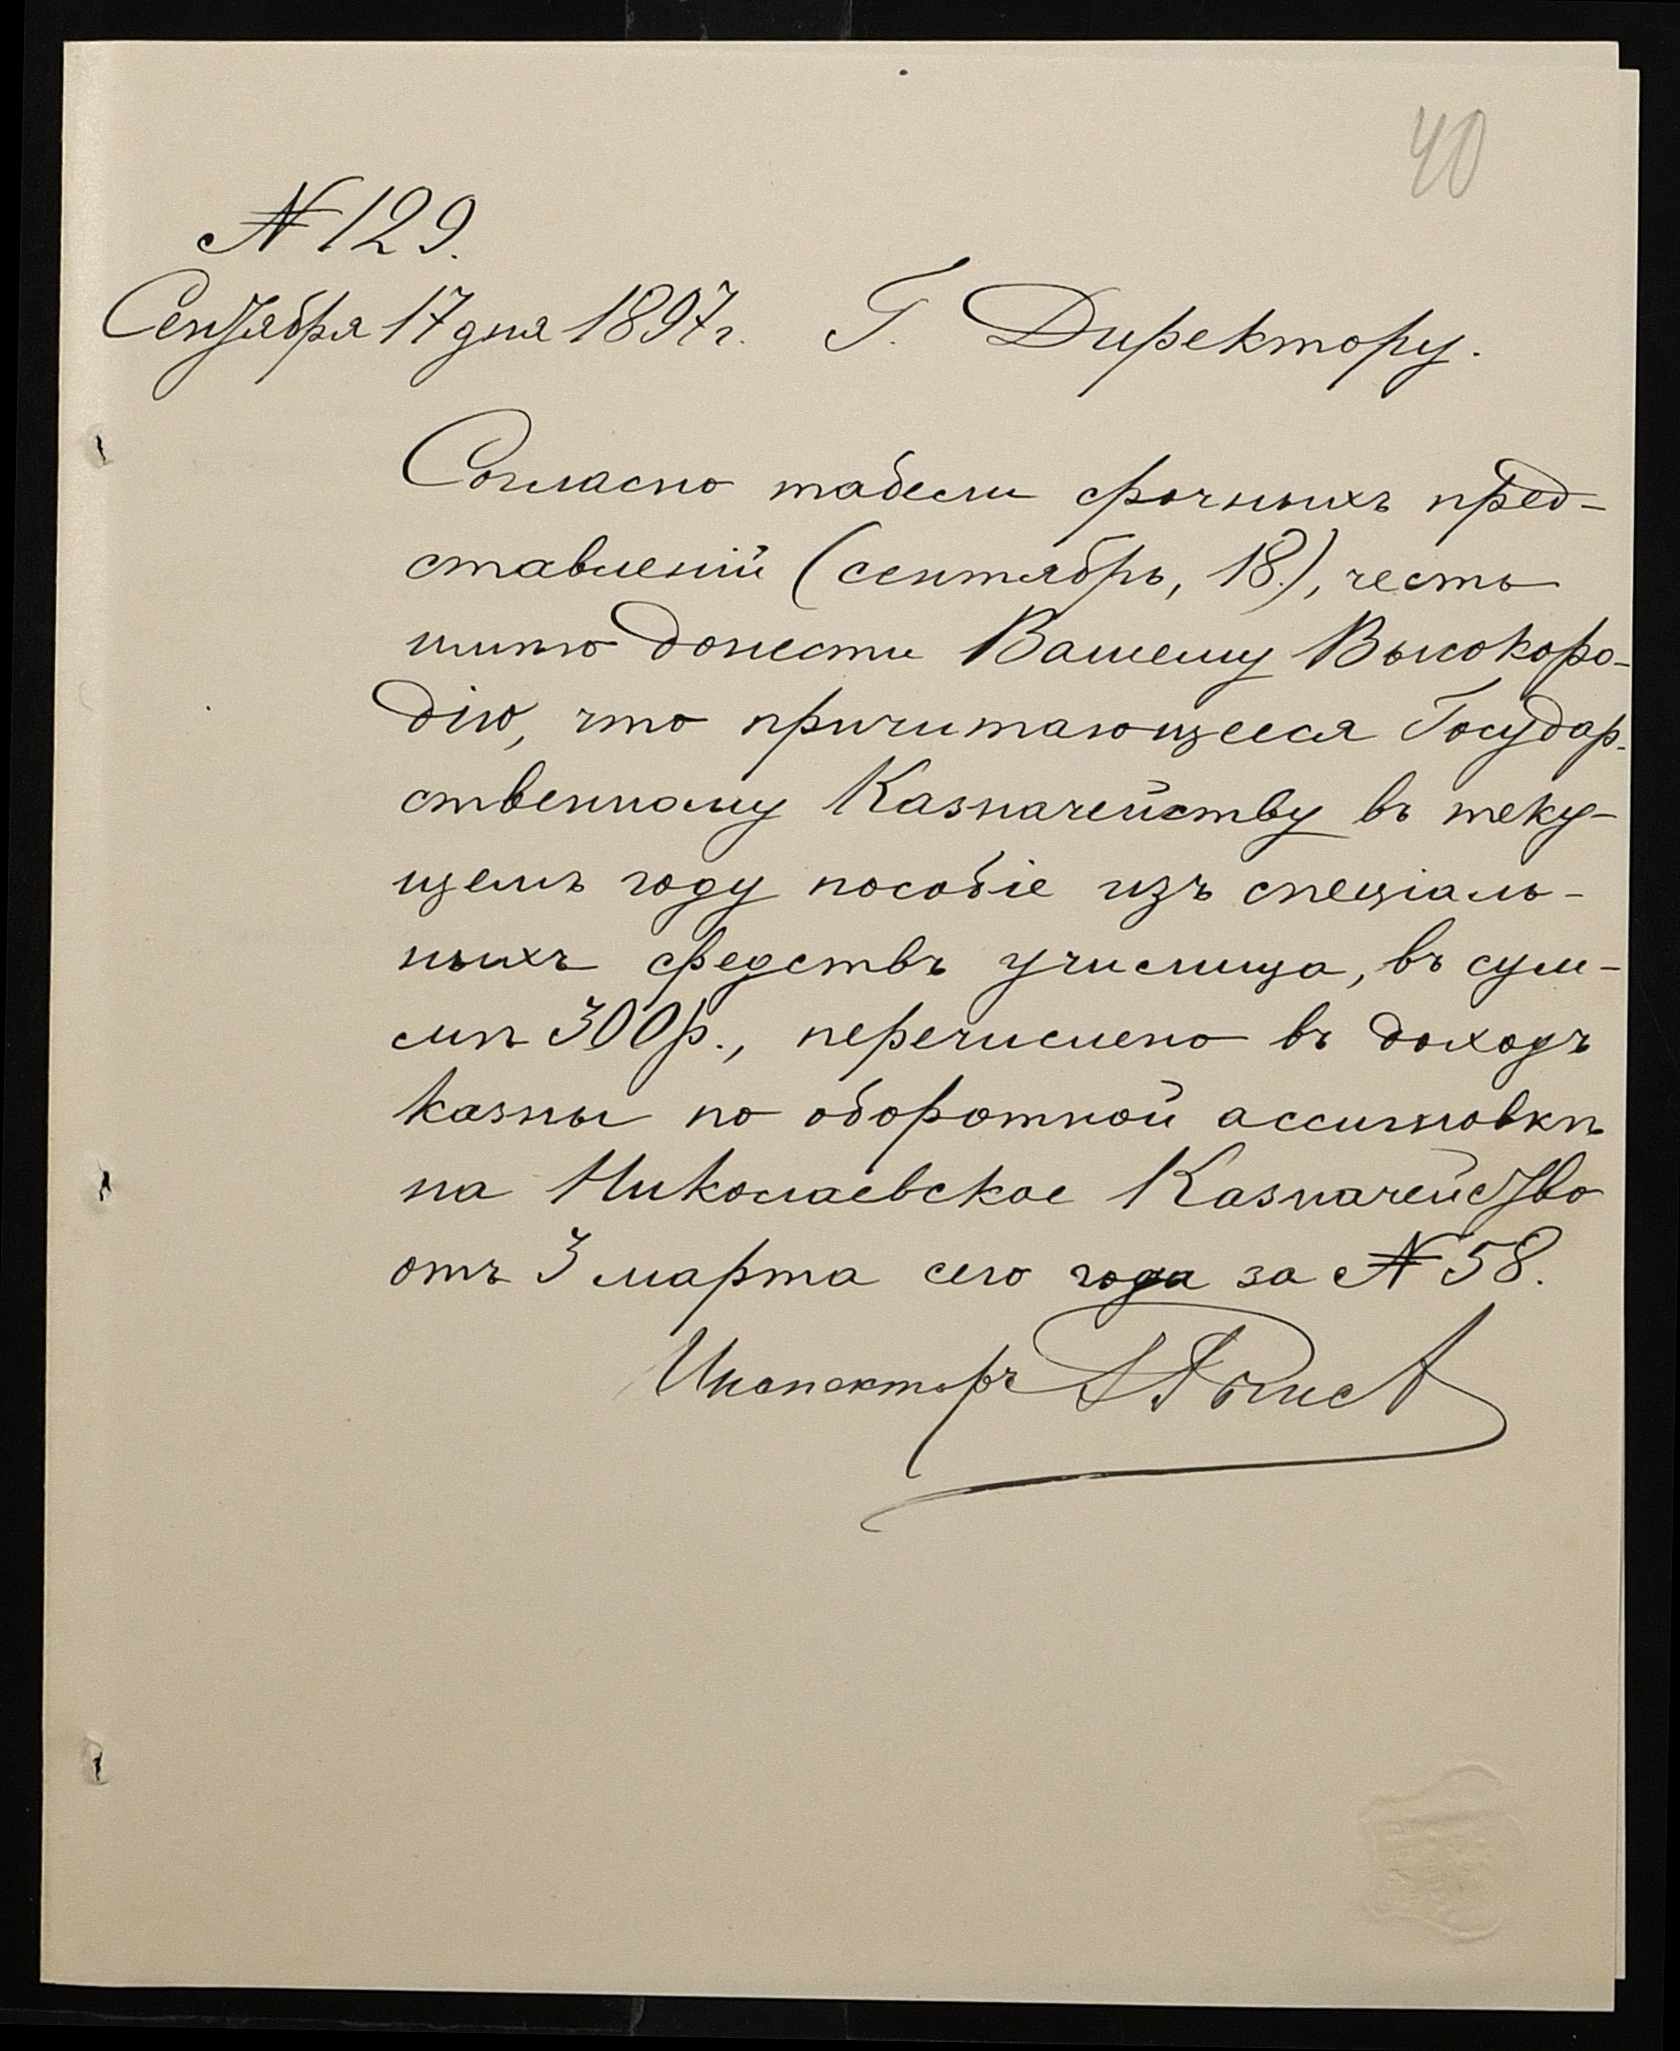 40
№ 129.
Сентября 17 дня 1897 г. Г. Директору.
Согласно табели срочныхъ пред-
ставленій (сентябрь, 18.), честь
имѣю донести Вашему Высокоро-
дію, что причитающееся Государ-
ственному Казначейству въ теку-
щемъ году пособіе изъ спеціаль-
ныхъ средствъ училища, въ сум-
мѣ 300 р., перечислено въ доходъ
казны по оборотной ассигновкѣ
на Николаевское Казначейство
отъ 3 марта сего года за № 58.
Инспекторъ